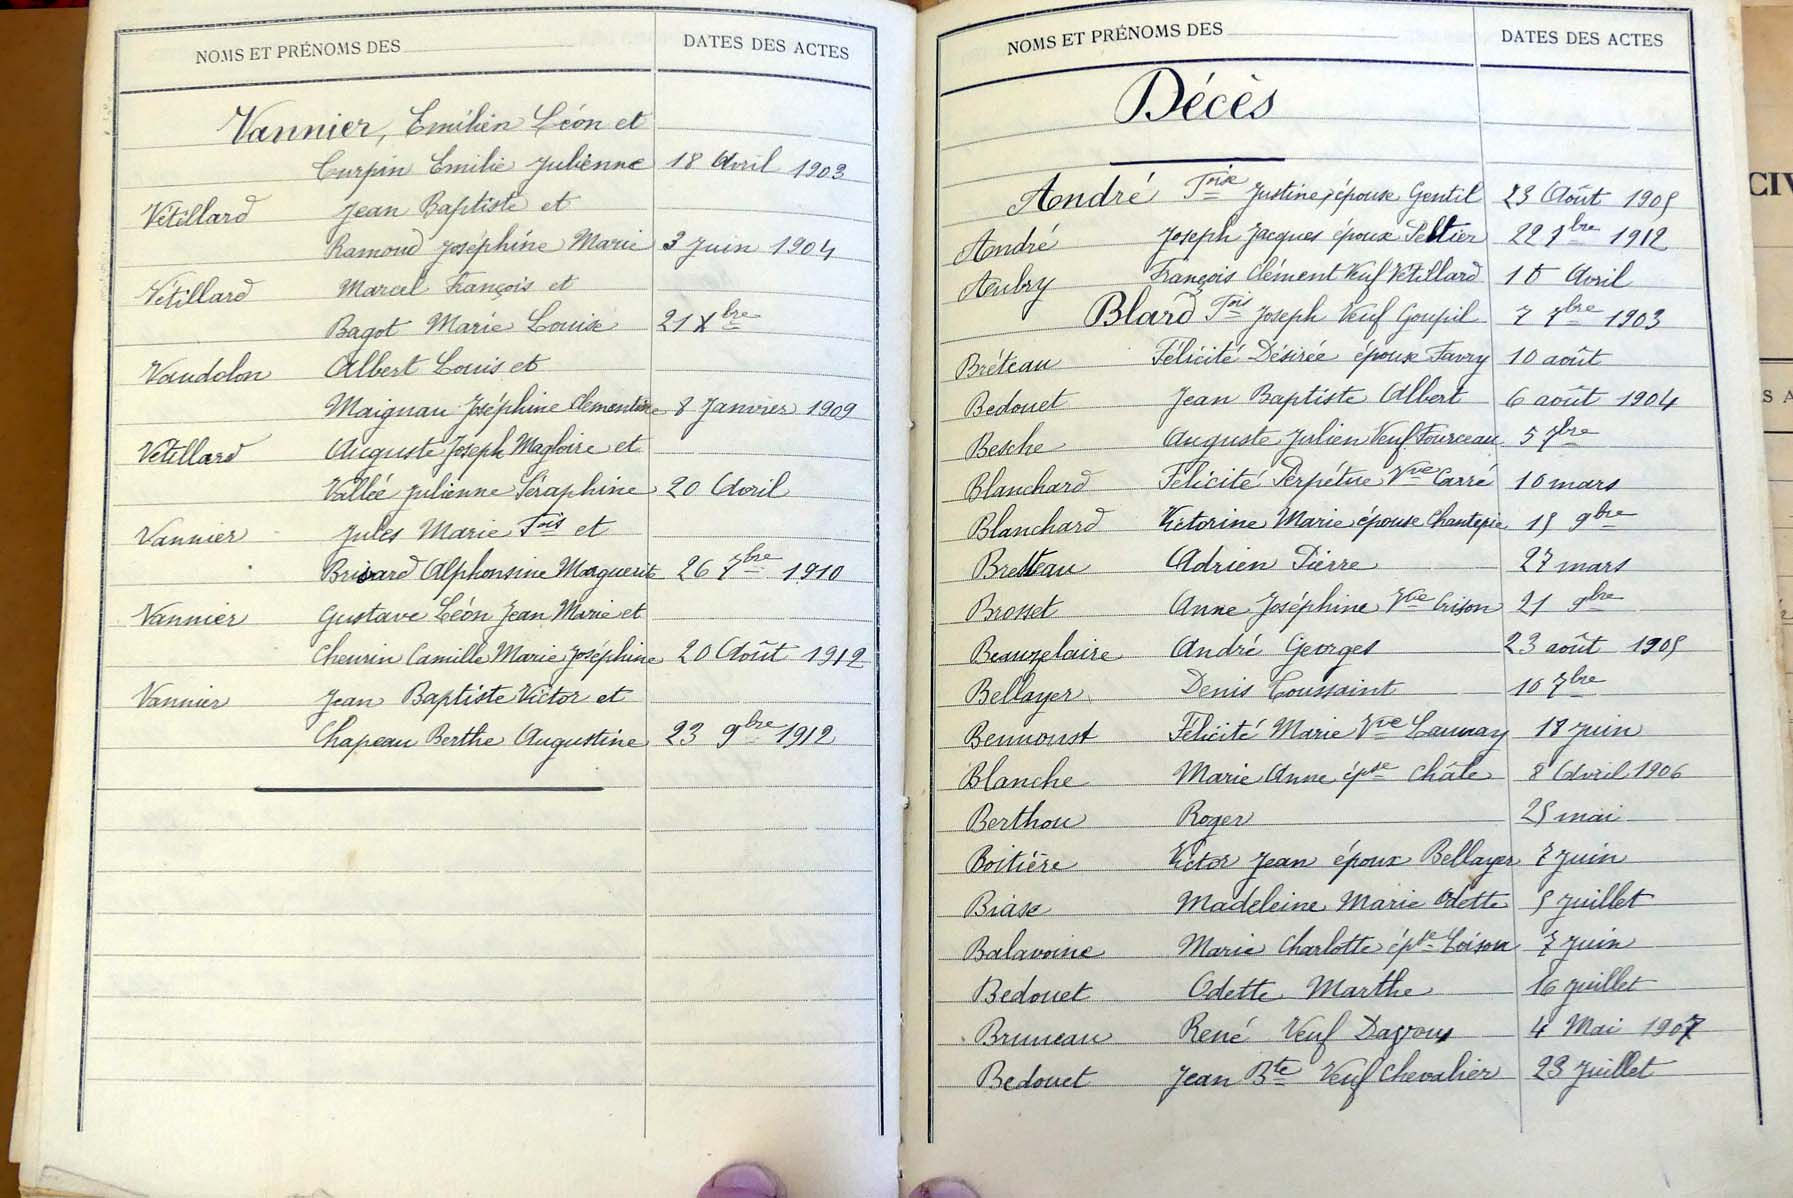 NOMS ET PRÉNOMS DES DATES DES ACTES
Vannier, Emilien Léon et
Turpin Emilie Julienne 18 Avril 1903
Vétillard Jean Baptiste et
Ramond Joséphine Marie 3 Juin 1904
Vétillard Marcel François et
Bagot Marie Louise 21 Xbre
Vaudolon Albert Louis et
Maignan Joséphine Clementine 8 Janvier 1909
Vétillard Auguste Joseph Magloire et
Vallée Julienne Séraphine 20 Avril
Vannier Jules Marie Fois et
Brisard Alphonsine Marguerite 26 7bre 1910
Vannier Gustave Léon Jean Marie et
Cheurin Camille Marie Joséphine 20 Août 1912
Vannier Jean Baptiste Victor et
Chapeau Berthe Augustine 23 9bre 1912
NOMS ET PRÉNOMS DES DATES DES ACTES
Décès
André Foise Justine, épouse Gentil 23 Août 1905
André Joseph Jacques époux Peltier 22 7bre 1912
Aubry François Clément Veuf Vétillard 10 Avril
Blard Fois Joseph Veuf Goupil 7 7bre 1903
Bréteau Félicité Désirée épouse Favry 10 août
Bedouet Jean Baptiste Albert 6 août 1904
Besche Auguste Julien Veuf Fourceau 5 7bre
Blanchard Félicité Perpétue Vve Carré 10 mars
Blanchard Victorine Marie épouse Chantepie 15 9bre
Bretteau Adrien Pierre 27 mars
Brosset Anne Joséphine Vve Crison 21 9bre
Beauzelaire André Georges 23 août 1905
Bellayer Denis Toussaint 10 7bre
Bennoust Félicité Marie Vve Launay 18 juin
Blanche Marie Anne épse Châle 8 Avril 1906
Berthou Roger 25 mai
Boitière Victor Jean époux Bellayer 7 juin
Biase Madeleine Marie Odette 5 juillet
Balavoine Marie Charlotte épse Loison 7 juin
Bedouet Odette Marthe 16 juillet
Bruneau René Veuf Davous 4 Mai 1907
Bedouet Jean Bte Veuf Chevalier 23 juillet
CIV